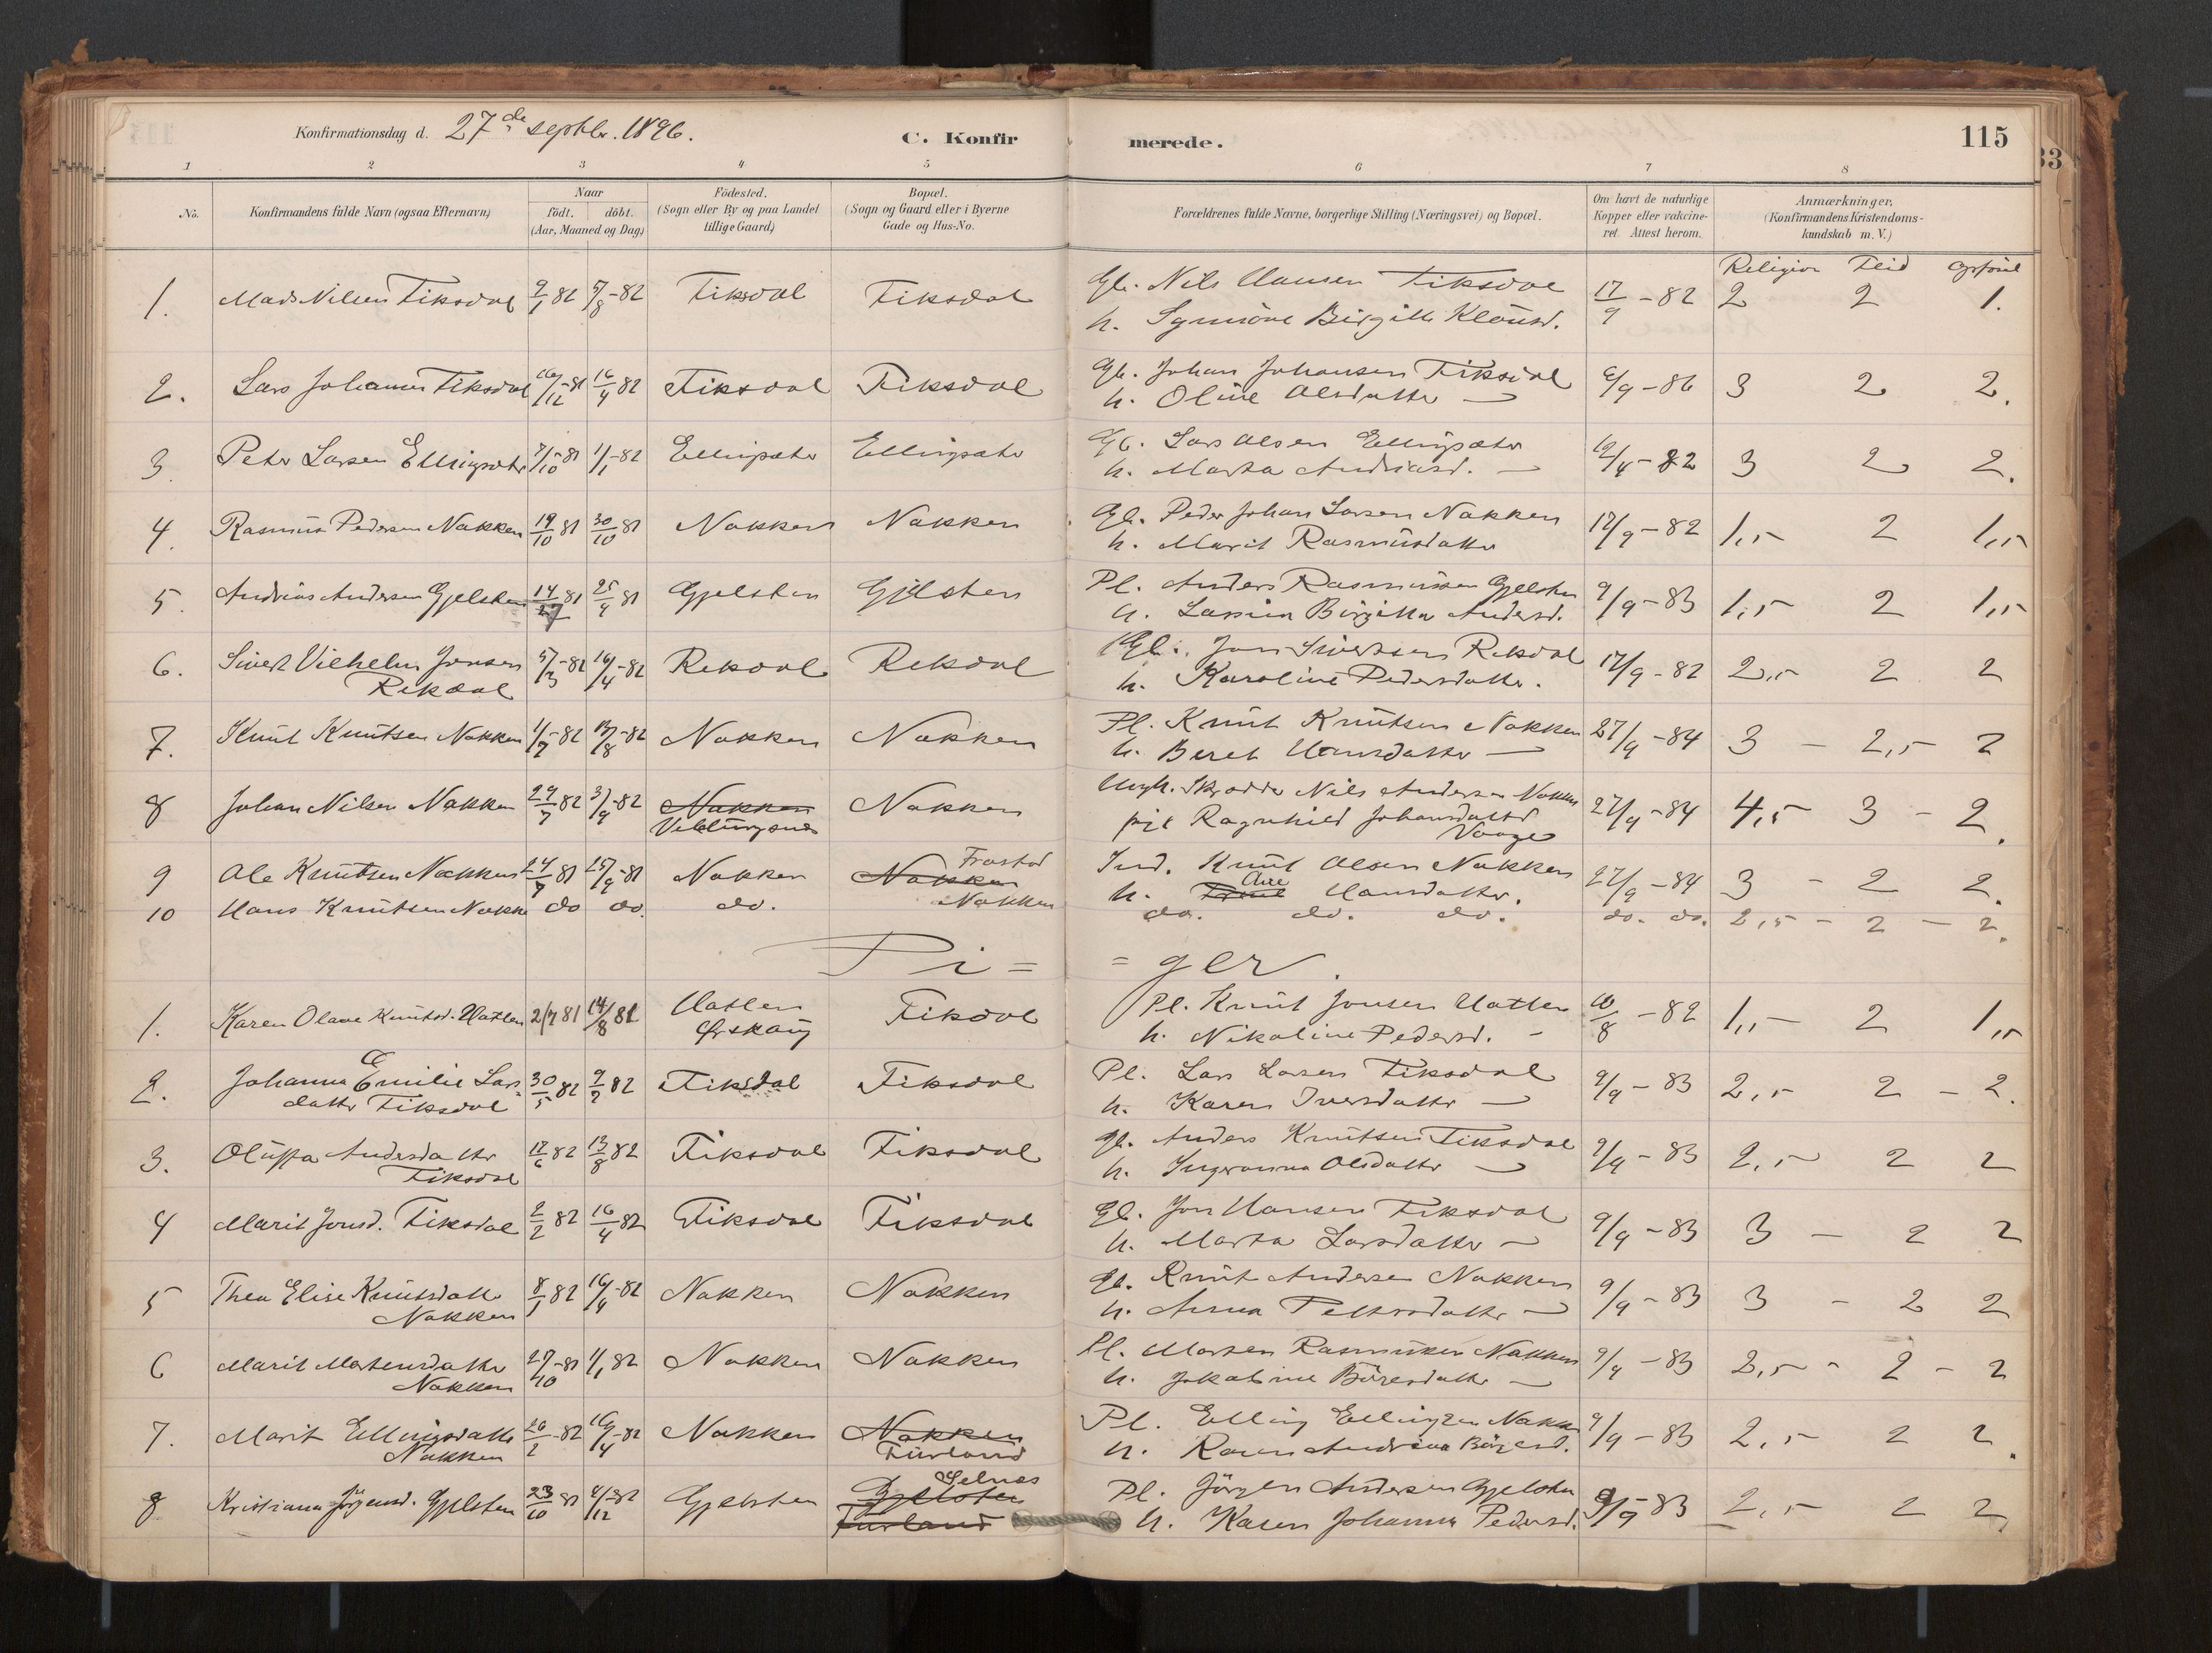 Konfirmationsdag d. 27de septbr. 1896.
C. Konfirmerede.
115
33
1 2 3 4 5 6 7 8
No.
Konfirmandens fulde Navn (ogsaa Efternavn)
Naar
födt. döbt.
(Aar, Maaned og Dag)
Födested.
(Sogn eller By og paa Landet
tillige Gaard)
Bopæl.
(Sogn og Gaard eller i Byerne
Gade og Hus-No.
Forældrenes fulde Navne, borgerlige Stilling (Næringsvei) og Bopæl.
Om havt de naturlige
Kopper eller vakcine-
ret. Attest herom.
Anmærkninger.
(Konfirmandens Kristendoms-
kundskab m. V.)
Religion Flid Opførsel
1. Mads Nilsen Fiksdal 9/1 82 5/8-82 Fiksdal Fiksdal Gb. Nils Hansen Fiksdal 17/9-82 2 2 1.
h. Synnöve Birgitte
2. Lars Johansen Fiksdal 16/12-81 16/4 82 Fiksdal Fiksdal Gb. Johan Johansen Fiksdal 6/9-86 3 2 2.
h. Oline Olsdatter —
3. Peter Larsen Ellingsæter 7/10-81 1/1-82 Ellingsæter Ellingsæter Gb. Lars Olsen Ellingsæter 3 2 2.
h. Marta Andriasd. —
4. Rasmus Pedersen Nakken 19/10 81 30/10 81 Nakken Nakken Gb. Peder Johan Larsen Nakken 17/9-82 1,5 2 1,5
h. Marit Rasmusdatter
5. Andrias Andersen Gjelsten 81 25/4 81 Gjelsten Gjelsten Pl. Anders Rasmussen Gjelsten 9/9-83 1,5 2 1,5
h. Birgitta Andersd.
6. Sivert Vilhelm Jonsen 5/3-82 16/4-82 Rekdal Rekdal Gb. Jon Sivertsen Rekdal 17/9-82 2,5 2 2
Rekdal h. Karoline Pedersdatter.
7. Knut Knutsen Nakken 1/7-82 Nakken Nakken Pl. Knut Knutsen Nakken 27/9-84 3 - 2,5 - 2
h. Beret Hansdatter —
8 Johan Nilsen Nakken 29/7 82 3/9-82 Nakken Nakken Ungk. Skrædder Nils Andersen Nakken 27/9-84 4,5 3 - 2.
Veblungsnes pige Ragnhild Johansdatter
Vaage
Frostad
9 Ole Knutsen Nakken 24/7 81 25/9-81 Nakken Nakken Ind. Knut Olsen Nakken 27/9-84 3 - 2 2.
Ane
h. Hansdatter.
10 Hans Knutsen Nakke do do. do. Nakken do. do. do. do. do. 2,5 - 2 - 2.
Pi= =ger.
1. Karen Olave Knutsd. Hatlen 2/7 81 14/8 81 Hatlen Fiksdal Pl. Knut Jonsen Hatlen 10/8-82 1,5 - 2 1,5
Ørskoug h. Nikoline Pedersd. -
2. Johanna Emilie Lars= 30/5 82 9/7 82 Fiksdal Fiksdal Pl. Lars Larsen Fiksdal 9/9-83 2,5 2 - 2.
datter Fiksdal h. Karen Iversdatter —
3. Oluffa Andersdatter 82 13/8 82 Fiksdal Fiksdal Gb. Anders Knutsen Fiksdal 9/9-83 2,5 2 2
Fiksdal h. Ingeranna Olsdatter —
4 Marit Jonsd. Fiksdal 2/2 82 16/4 82 Fiksdal Fiksdal Gb. Jon Hansen Fiksdal 9/9-83 3 - 2 2
h. Marta Larsdatter —
5 Thea Elise Knutsdatter 8/1 82 16/4-82 Nakken Nakken Gb. Knut Andersen Nakken 9/9-83 3 - 2 2
Nakken h. Anna Pettersdatter —
6 Marit Mortensdatter 27/10-81 1/1 82 Nakken Nakken Pl. Morten Rasmussen Nakken 9/9-83 2,5 - 2 - 2
Nakken h. Jakobine Börresdatter —
7. Marit Ellingsdatter 26/2-82 16/4-82 Nakken Nakken Pl. Elling Ellingsen Nakken 9/9-83 2,5 2 2.
Nakken Furland h. Karen Andrina
Selnes
8 Kristiana Jörgensd. Gjelsten 23/10 81 Gjelsten Gjelsten Pl. Jörgen Andersen Gjelsten 9/9 83 2,5 2 2.
Furland h. Karen Johanna Pedersd.